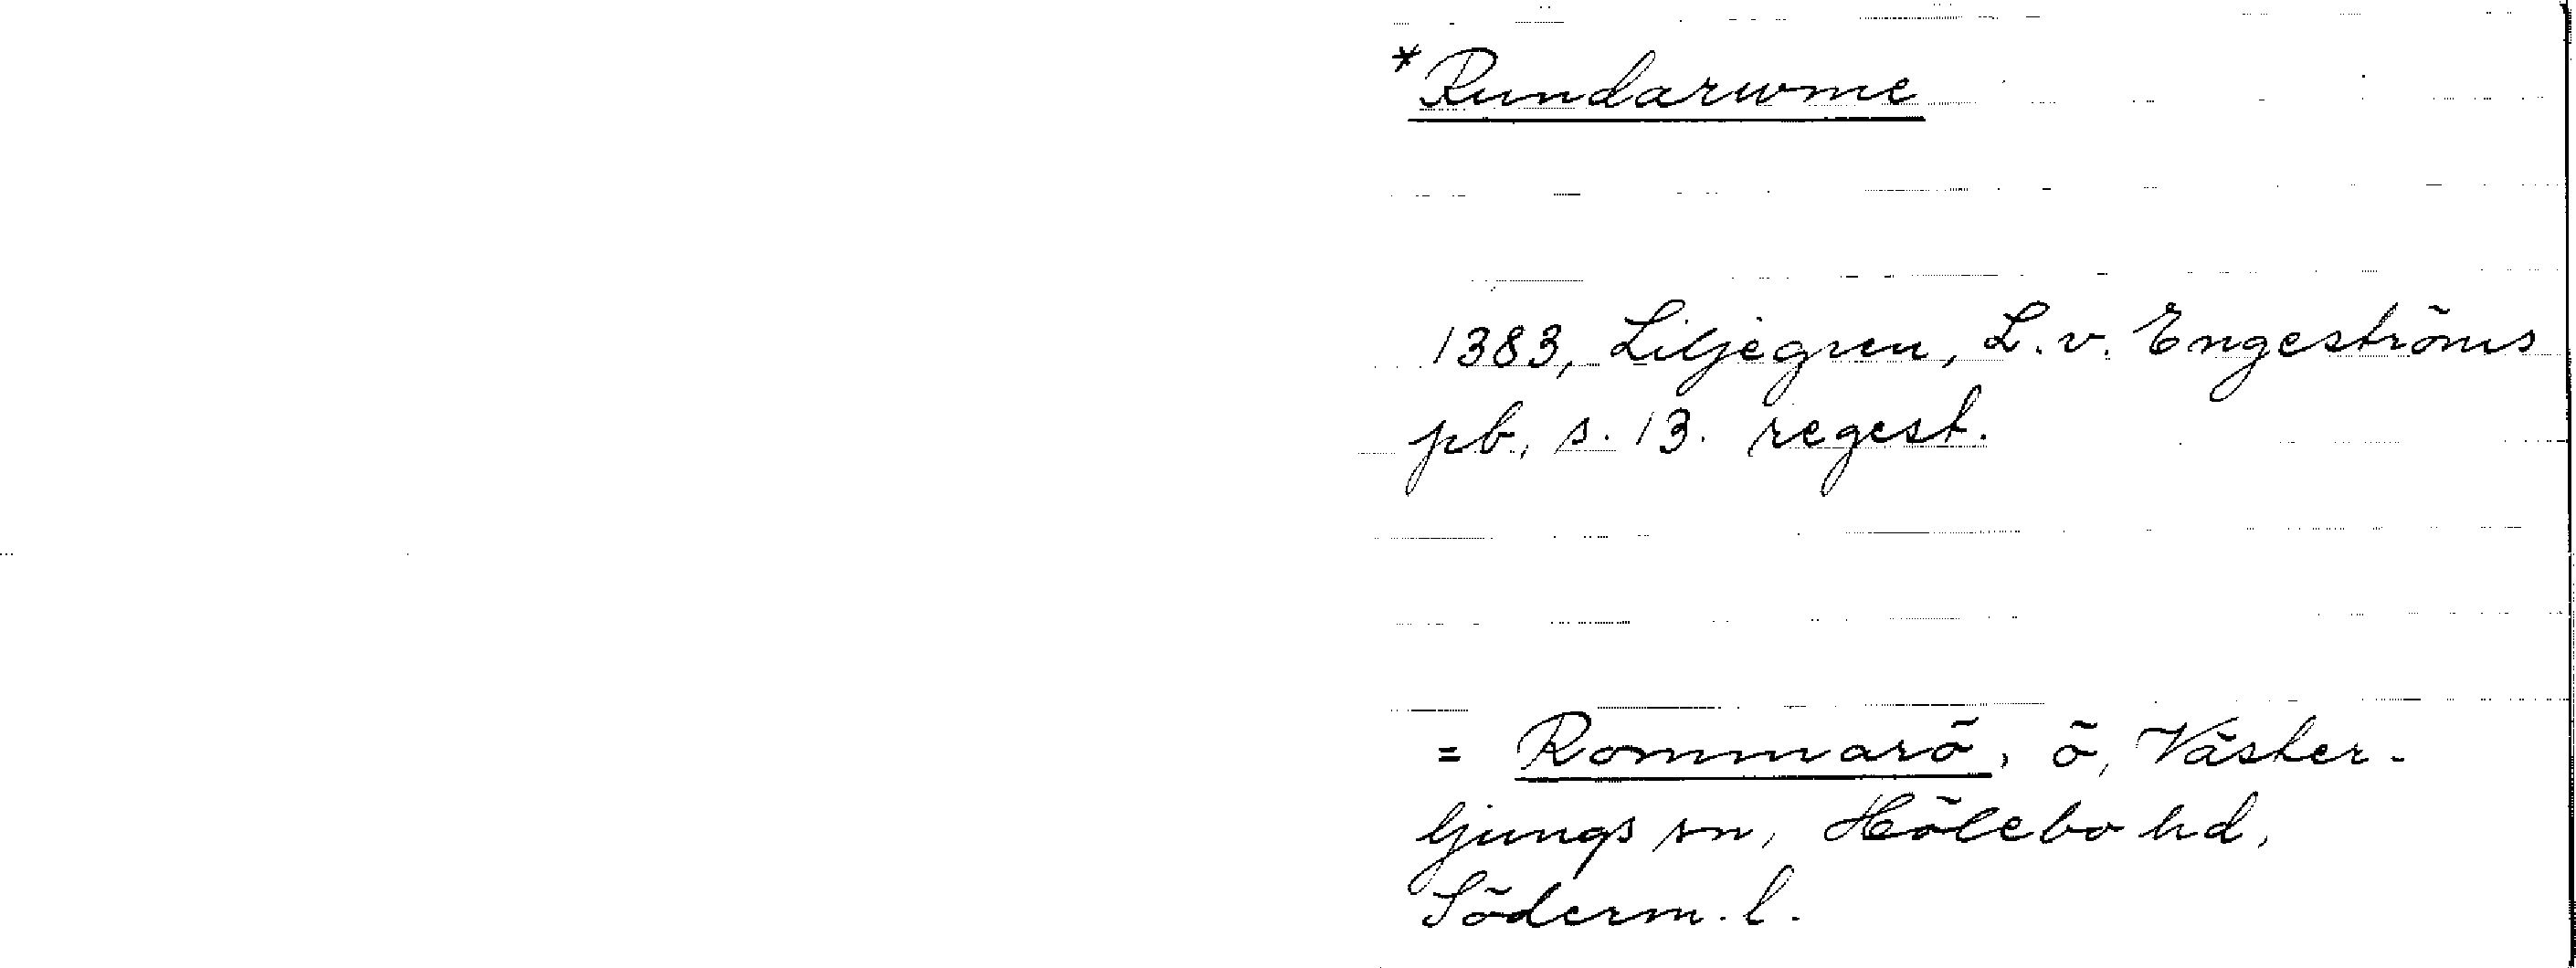 *Rundarwme
1383, Liljegren, L. v. Engeströms
pb., s. 13. regest.
= Rommarö, ö, Väster-
ljungs sn, Hölebo hd,
Söderm. l.